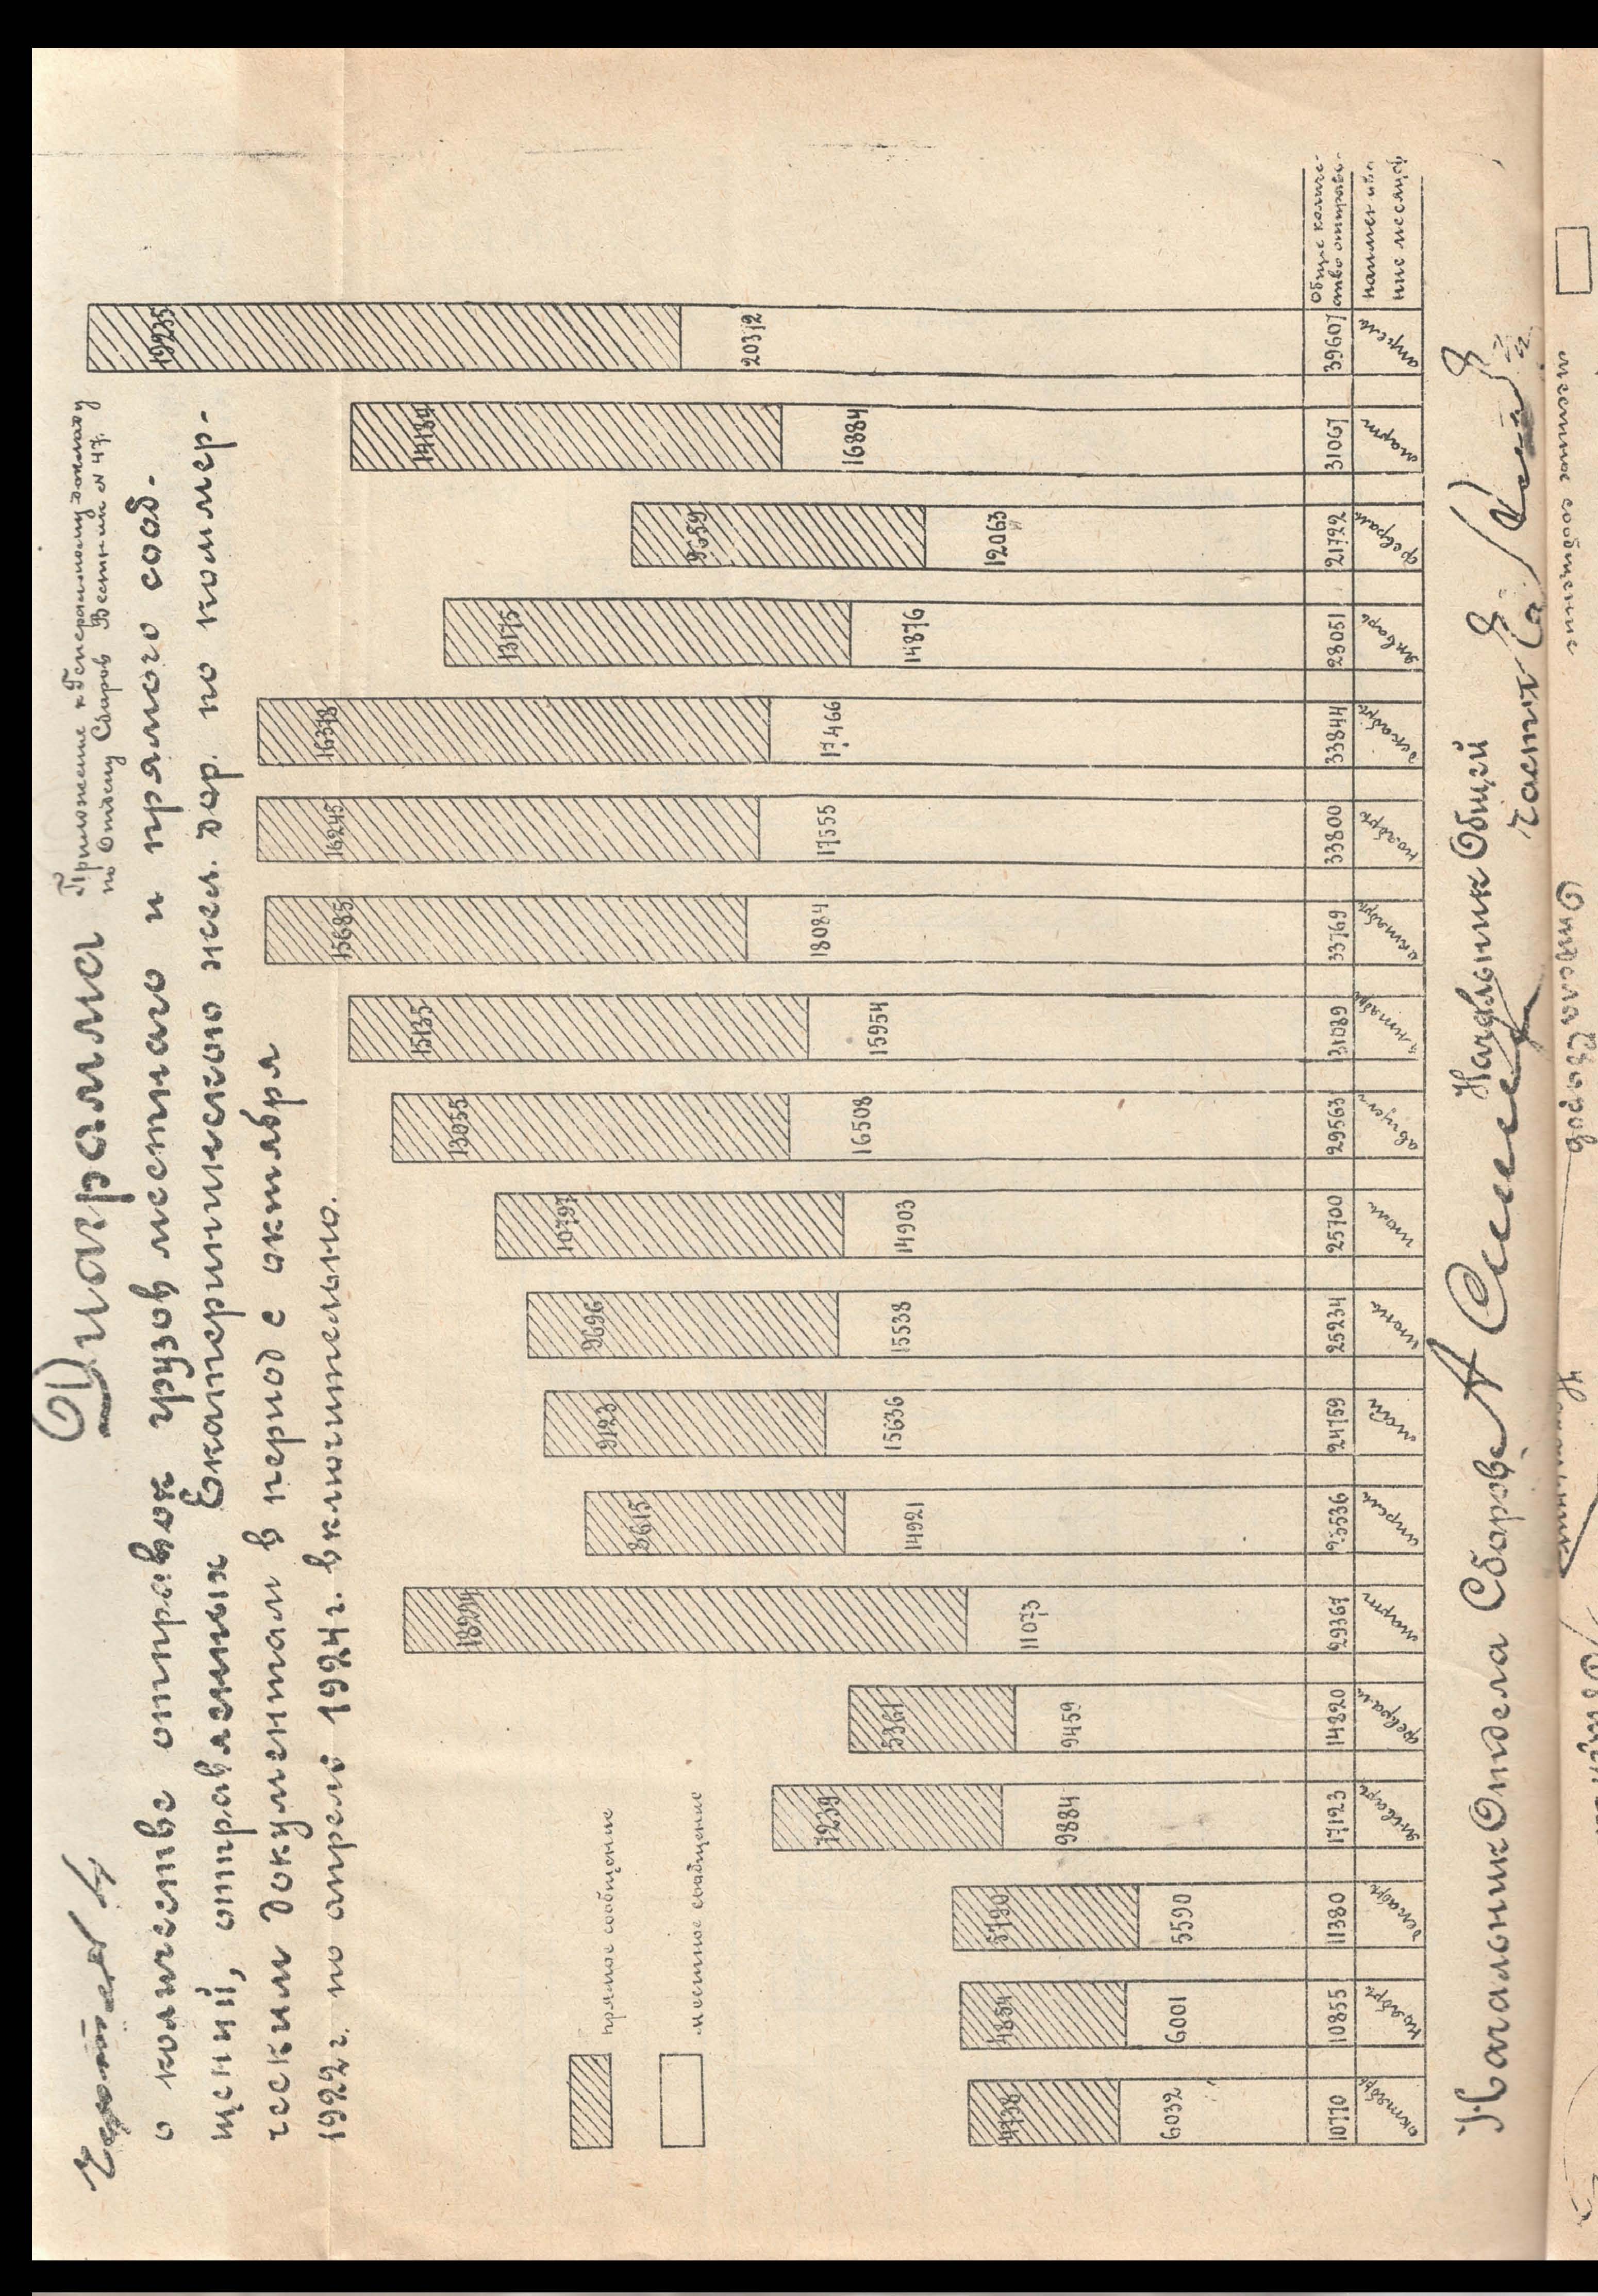 Диаграмма
Приложение к Генеральному докладу
по Отделу Сборов Вестник № 47.
о количестве отправок грузов местнаго и прямого сооб-
щений, отправленных Екатерининскою жел. дор. по коммер-
ческим документам в период с октября
1922 г. по апрель 1924 г. включительно.
прямое сообщение
местное сообщение
4738 4854 5790 7239 5361 18294 8615 9123 9696 10797 13055 15135 15685 16245 16378 13175 9659 14184 19235
6032 6001 5590 9884 9459 11073 14921 15636 15538 14903 16508 15954 18084 17555 17466 14876 12063 16884 20372
10770 10855 11380 17123 14820 29367 23536 24759 25234 25700 29563 31089 33769 33800 33844 28051 21722 31067 39607 Общее количе-
ство отправо-
октябрь ноябрь декабрь январь февраль март апрель май июнь июль август сентябрь октябрь ноябрь декабрь январь февраль март апрель
ние месяцев
Начальник Отдела Сборов
Начальник Общей
части
местное сообщение
Отдела Сборов